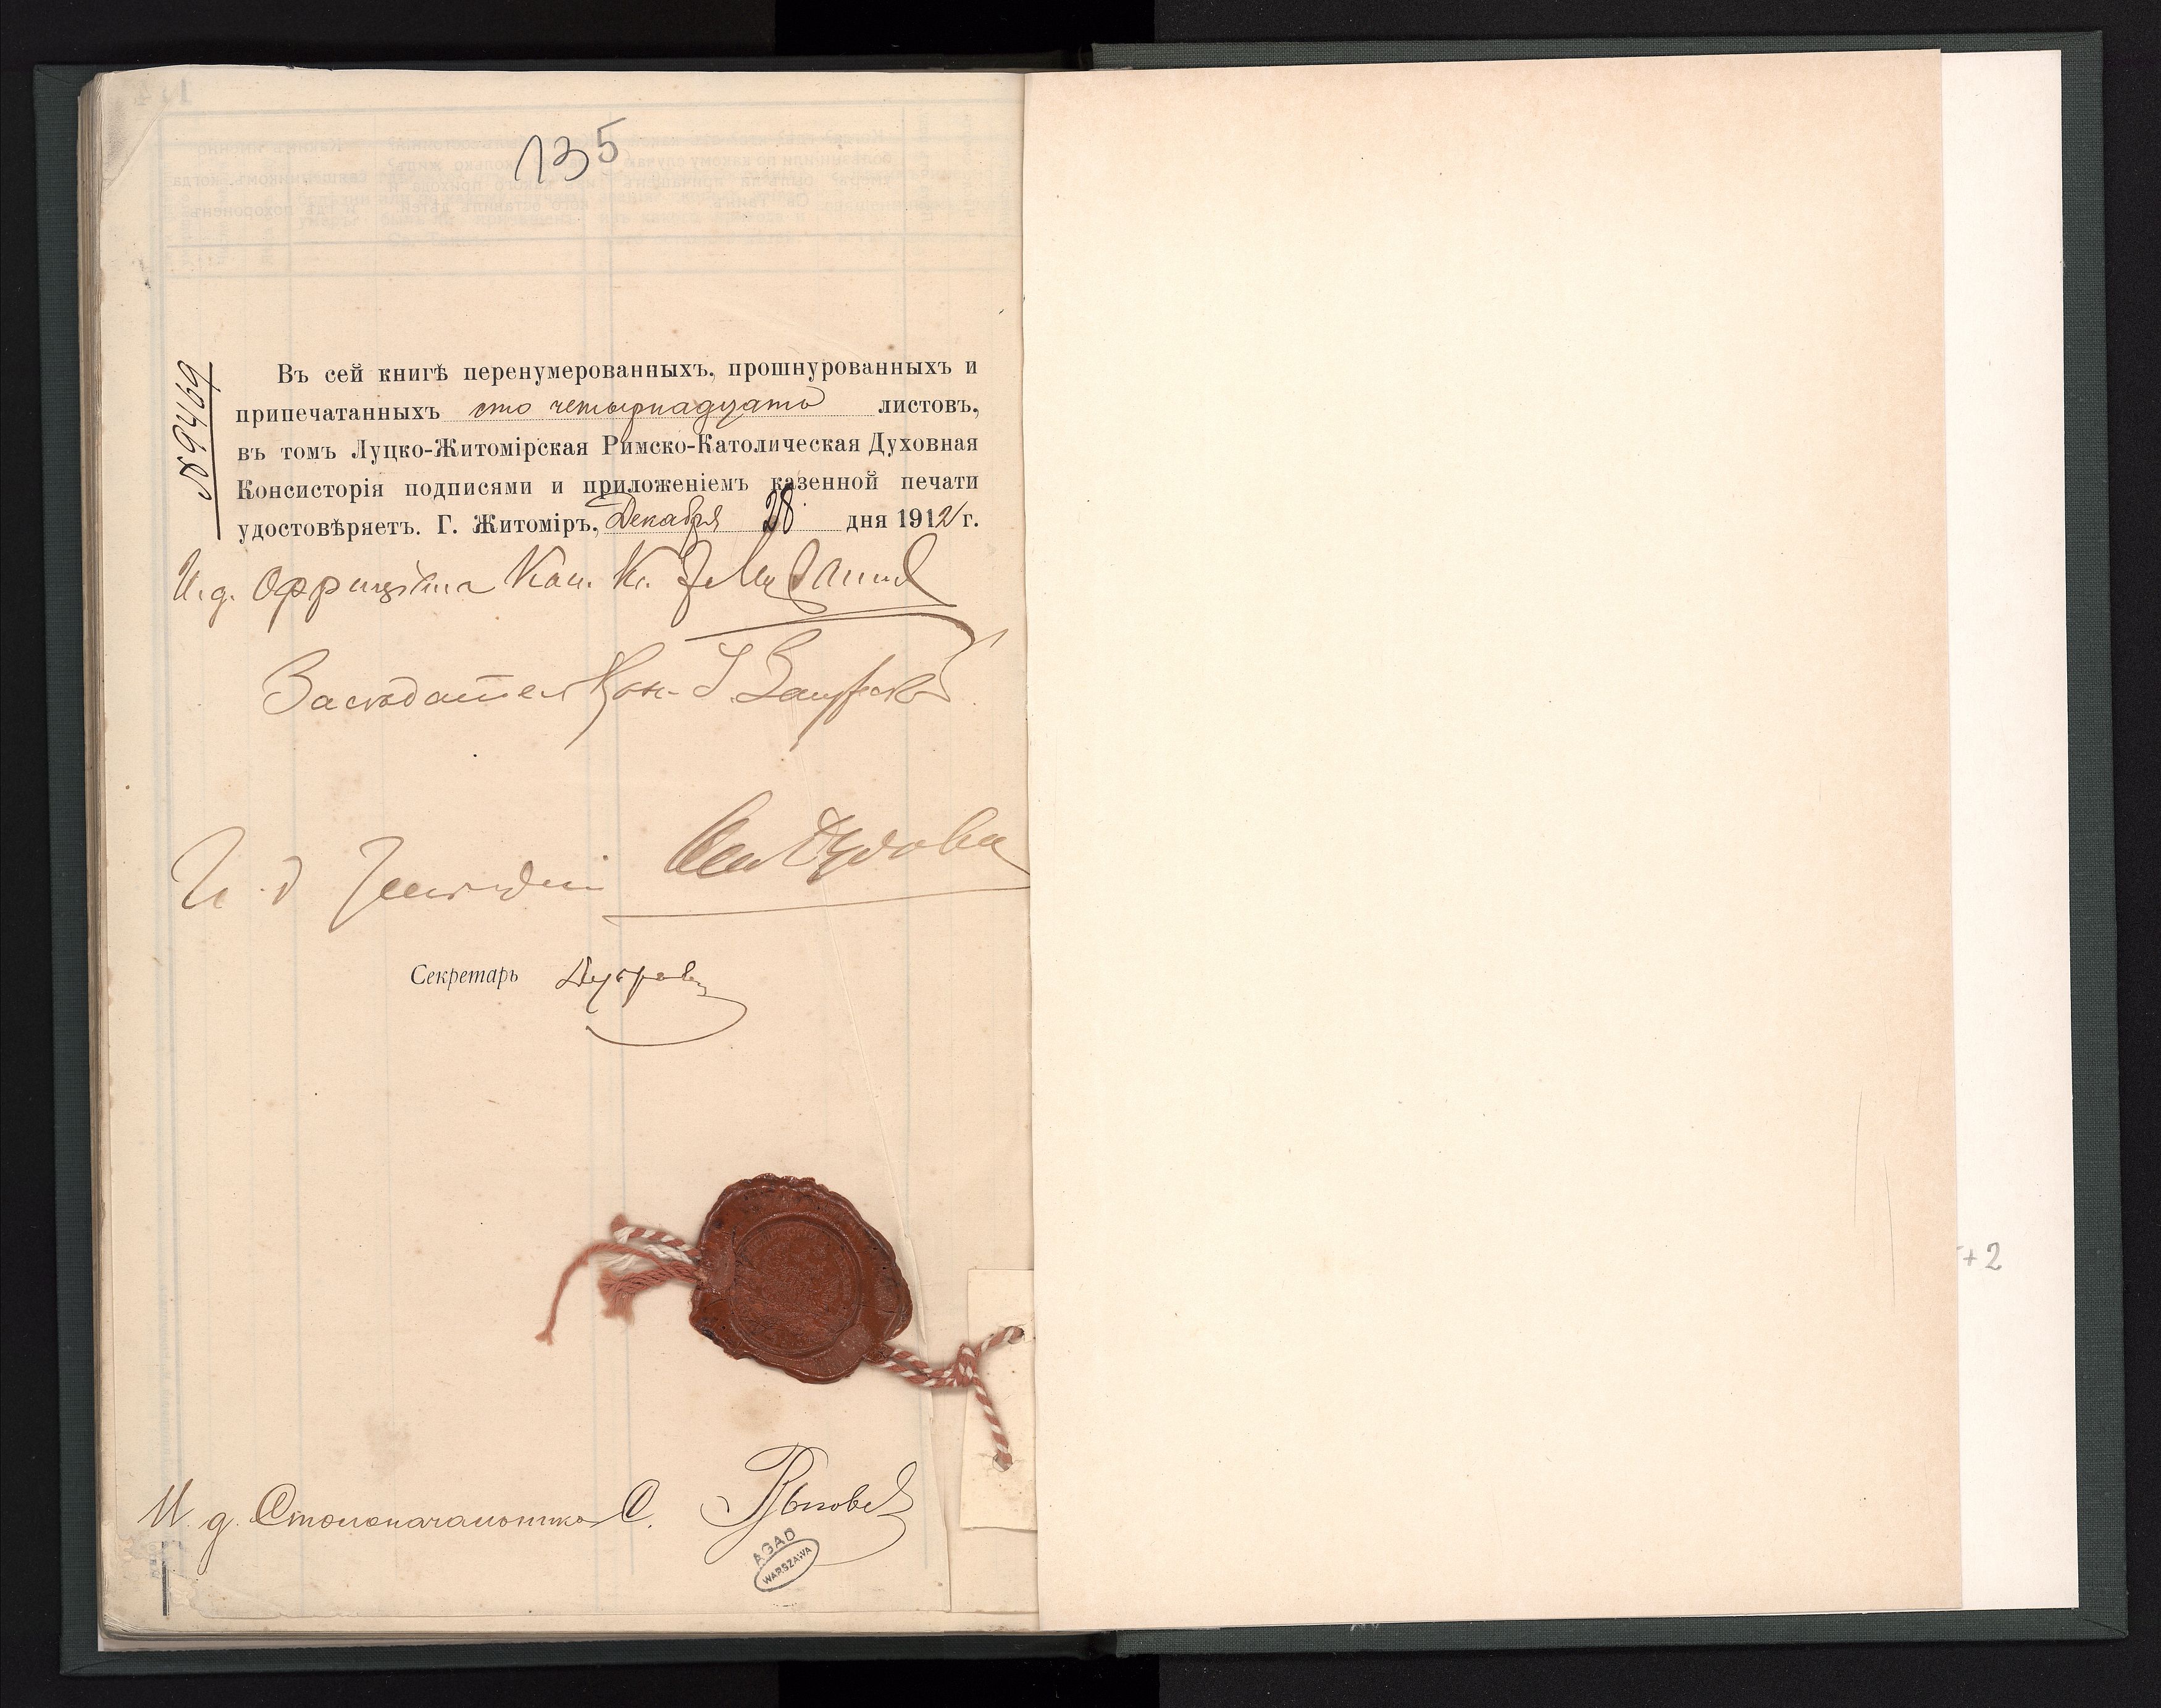 135
№ 9469
Въ сей книгѣ перенумерованныхъ, прошнурованныхъ и
припечатанныхъ сто четырнадцать листовъ,
въ томъ Луцко-Житомірская Римско-Католическая Духовная
Консисторія подписями и приложеніемъ казенной печати
удостовѣряетъ. Г. Житоміръ, Декабря 28 дня 1912 г.
И. д. Оффиціала Кан. К.
Засѣдатель Кан.
И. д
Секретарь
И. д. Столоначальника С.
AGAD
WARSZAWA
+2